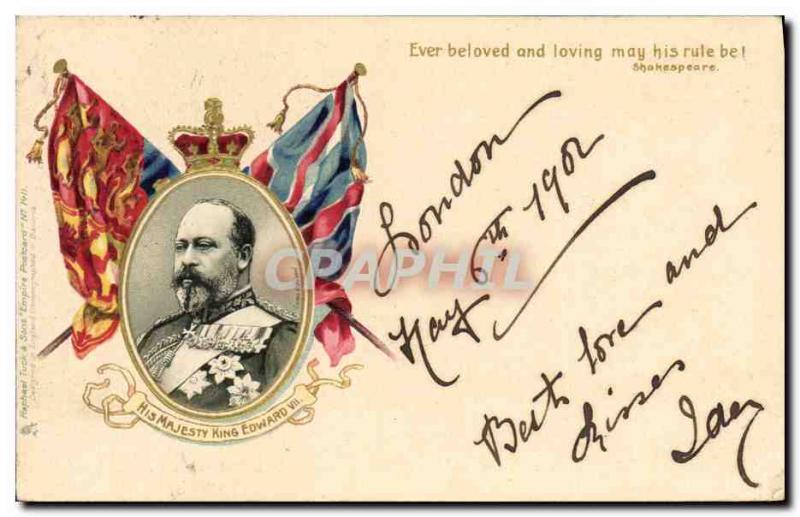 Ever beloved and loving may his rule be!
Shakespeare.
London
May 6th 1902
Best love and
kisses
Ida
HIS MAJESTY KING EDWARD VII.
Raphael Tuck & Sons "Empire Postcard" No 1411.
CPAPHIL